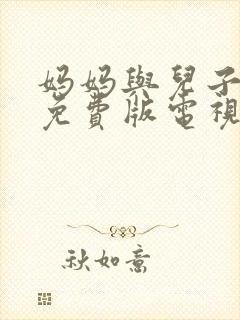 妈妈與兒子
免費版電視
秋如意